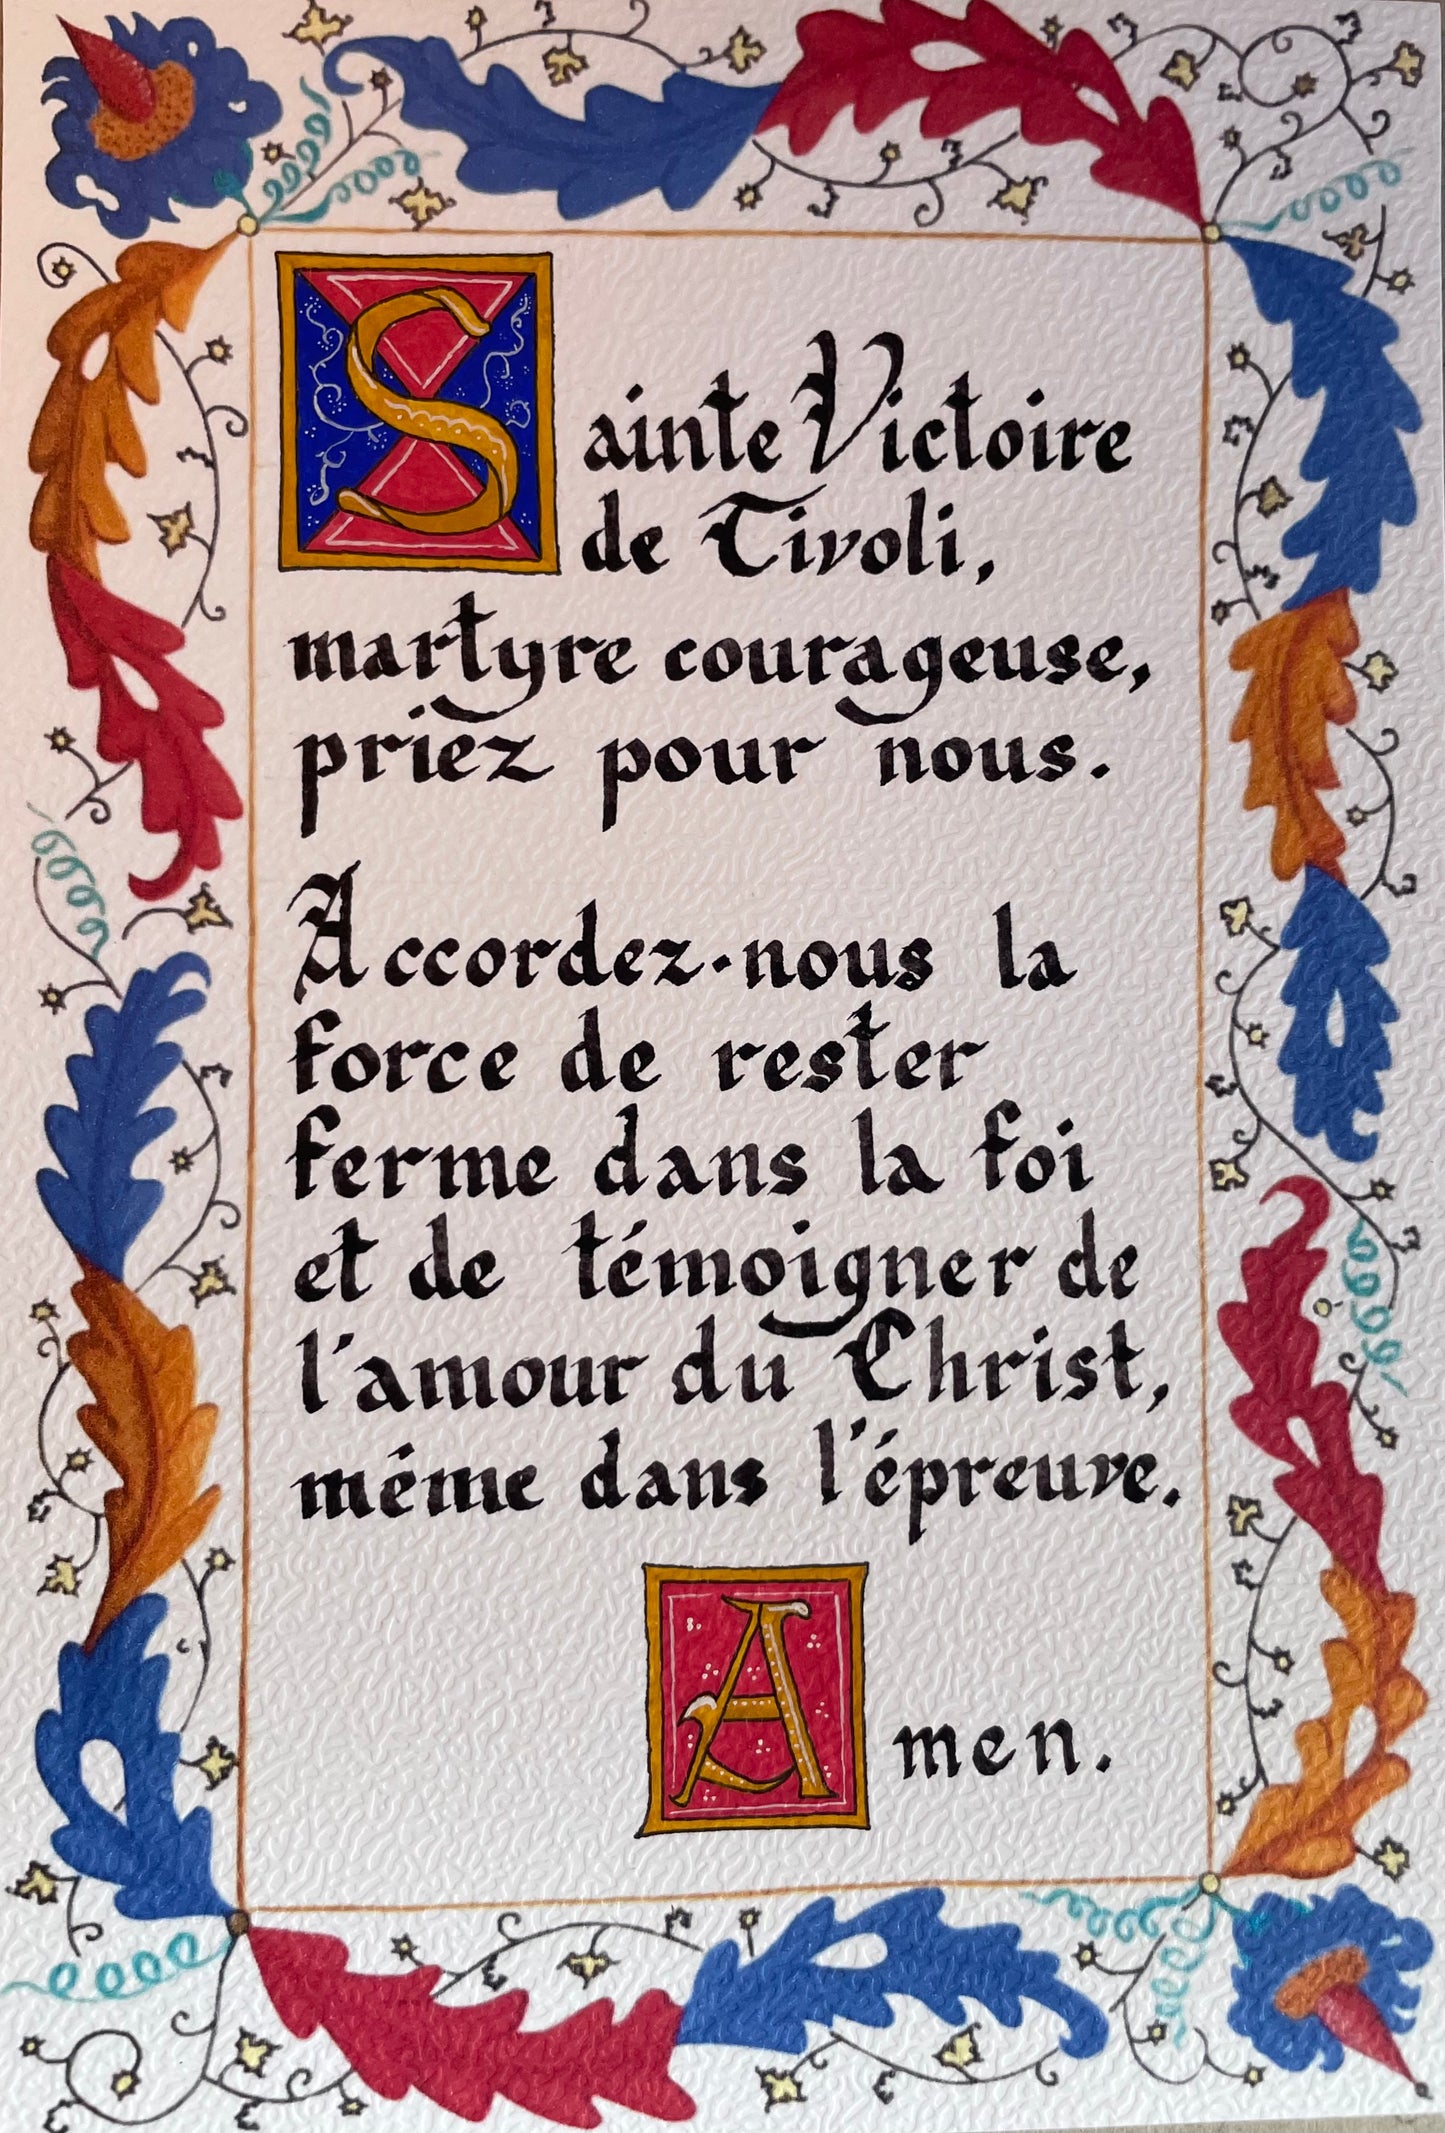 Sainte Victoire
de Tivoli,
martyre courageuse,
priez pour nous.
Accordez-nous la
force de rester
ferme dans la foi
et de témoigner de
l'amour du Christ,
même dans l'épreuve.
Amen.